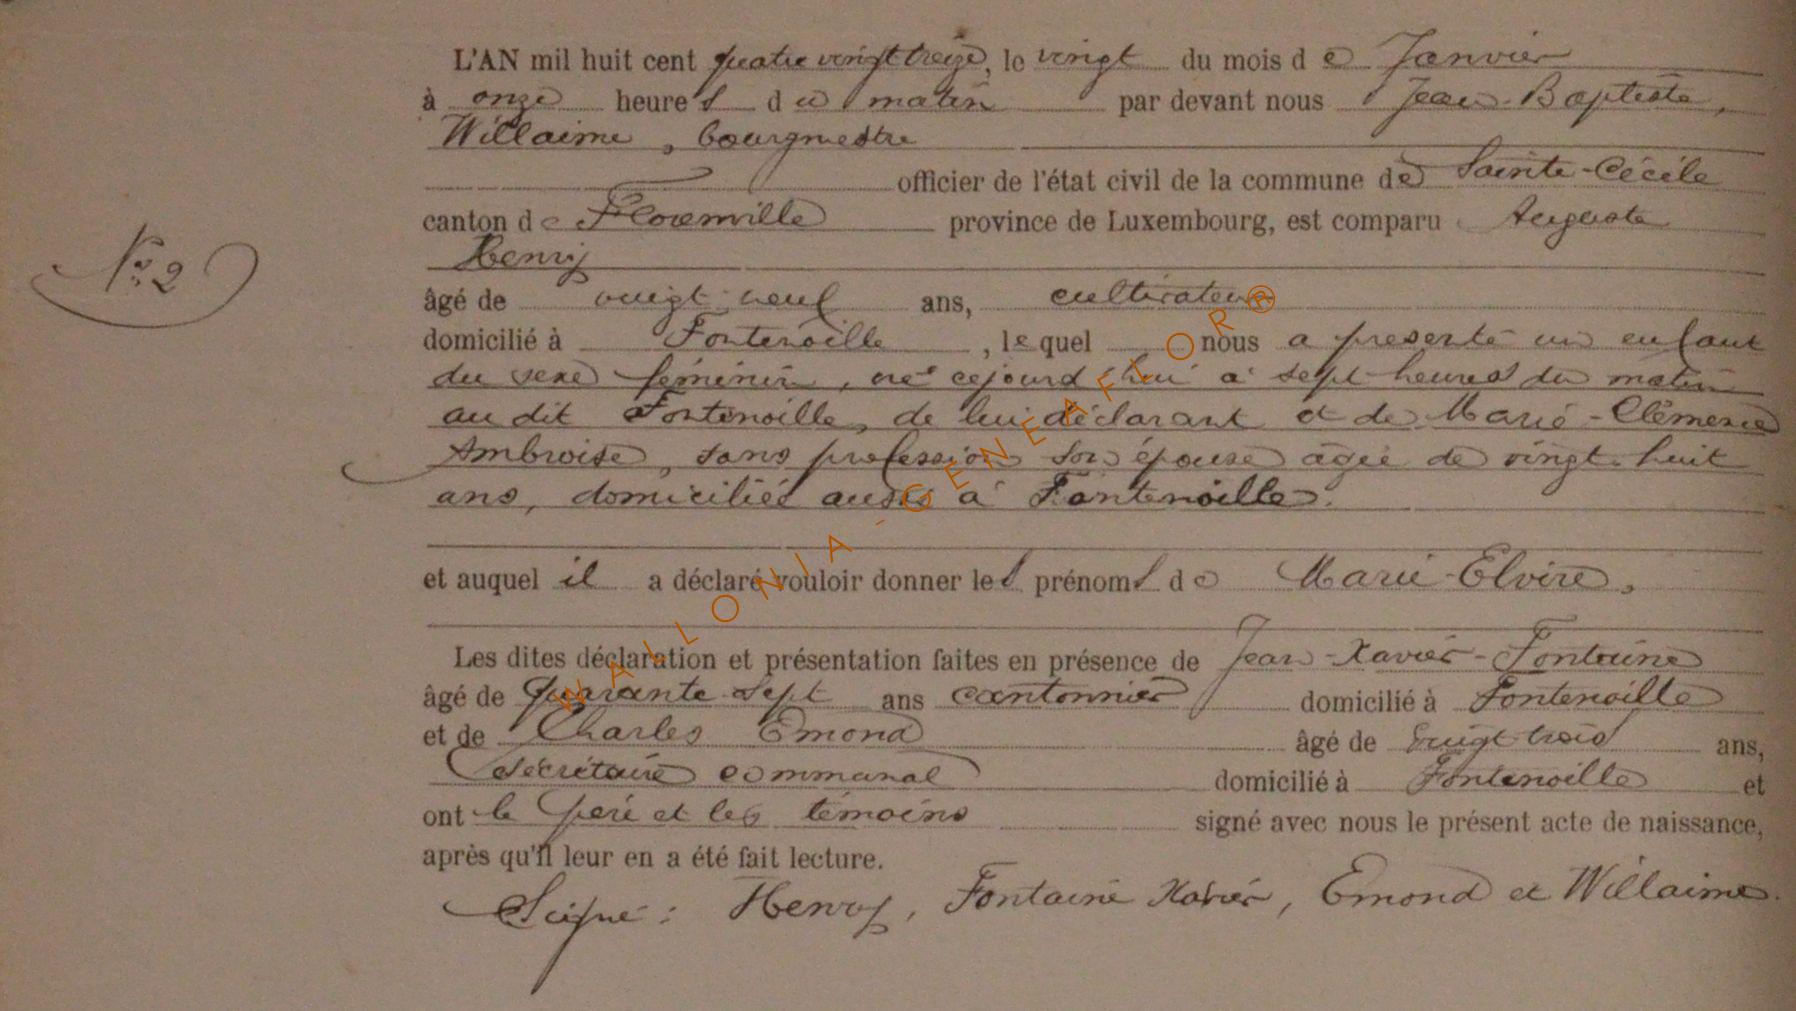 L'AN mil huit cent quatre vingt treize, le vingt du mois de Janvier
à onze heures du matin par devant nous Jean-Baptiste,
Willaime, bourgmestre
officier de l'état civil de la commune de Sainte-Cécile
canton de Florenville province de Luxembourg, est comparu Auguste
Henry
N° 2
âgé de vingt-neuf ans, cultivateur
domicilié à Fontenoille, lequel nous a presenté un enfant
du sexe féminin, né cejourd'hui à sept heures du matin
au dit Fontenoille, de lui déclarant et de Marie-Clémence
Ambroise, sans profession son épouse agée de vingt-huit
ans, domiciliée aussi à Fontenoille.
et auquel il a déclaré vouloir donner les prénoms de Marie-Elvire,
Les dites déclaration et présentation faites en présence de Jean-Xavier-Fontaine
âgé de quarante-sept ans cantonnier domicilié à Fontenoille
et de Charles Emond âgé de vingt trois ans,
secrétaire communal domicilié à Fontenoille et
ont le père et les témoins signé avec nous le présent acte de naissance,
après qu'il leur en a été fait lecture.
Signé: Henry, Fontaine Xavier, Emond et Willaime.
WALLONIA-GENEAFLOR®